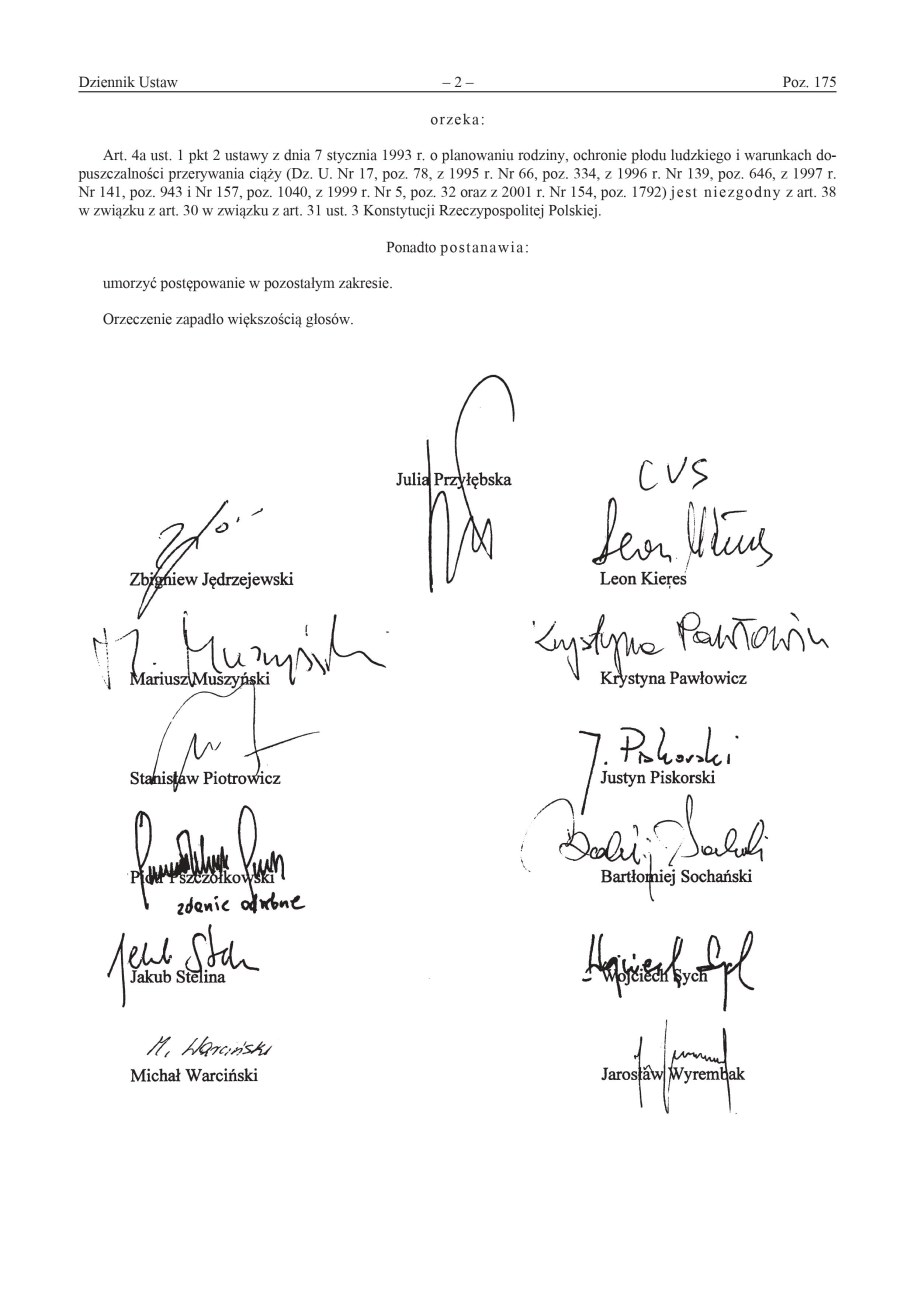 Dziennik Ustaw – 2 – Poz. 175
orzeka:
Art. 4a ust. 1 pkt 2 ustawy z dnia 7 stycznia 1993 r. o planowaniu rodziny, ochronie płodu ludzkiego i warunkach do-
puszczalności przerywania ciąży (Dz. U. Nr 17, poz. 78, z 1995 r. Nr 66, poz. 334, z 1996 r. Nr 139, poz. 646, z 1997 r.
Nr 141, poz. 943 i Nr 157, poz. 1040, z 1999 r. Nr 5, poz. 32 oraz z 2001 r. Nr 154, poz. 1792) jest niezgodny z art. 38
w związku z art. 30 w związku z art. 31 ust. 3 Konstytucji Rzeczypospolitej Polskiej.
Ponadto postanawia:
umorzyć postępowanie w pozostałym zakresie.
Orzeczenie zapadło większością głosów.
Julia Przyłębska
CVS
Leon Kieres
Zbigniew Jędrzejewski
Leon Kieres
M. Muszyński
Krystyna Pawłowicz
Mariusz Muszyński
Krystyna Pawłowicz
J. Piskorski
Stanisław Piotrowicz
Justyn Piskorski
Piotr Pszczółkowski
Bartłomiej Sochański
zdanie odrębne
Jakub Stelina
Wojciech Sych
M. Warciński
Michał Warciński
Jarosław Wyrembak